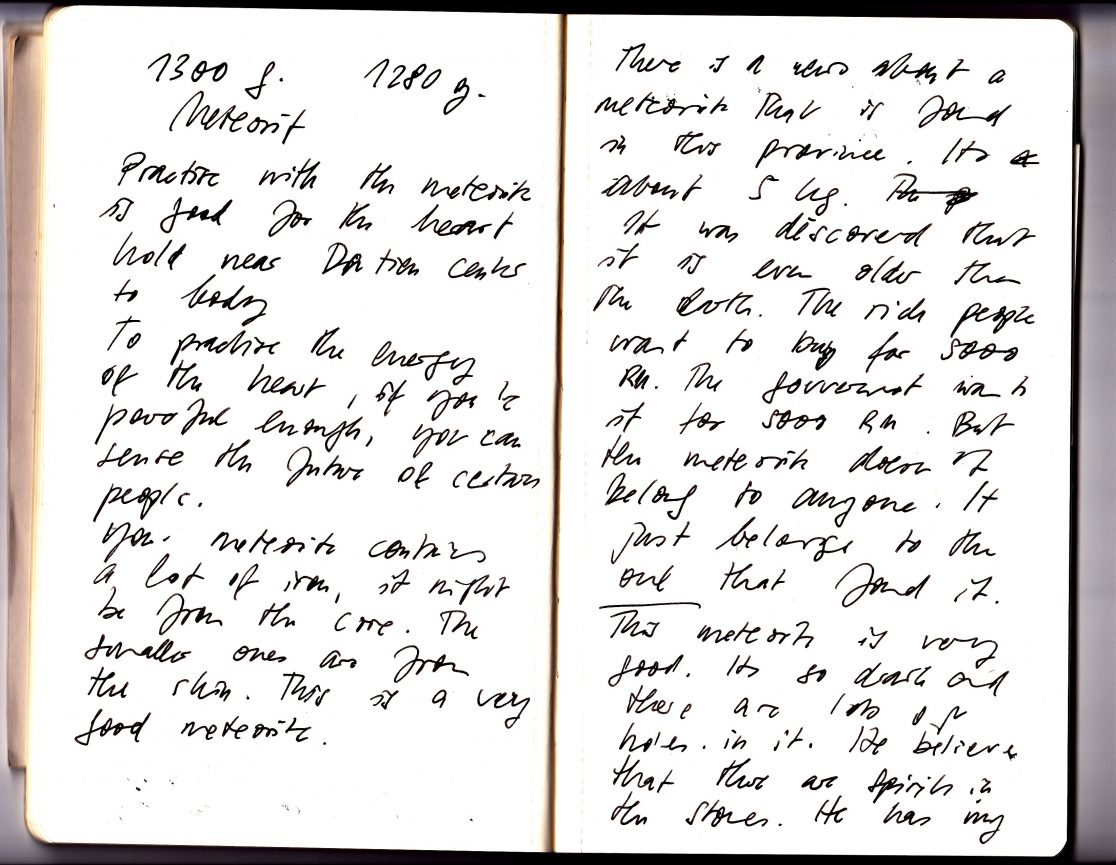 1300 g. 1280 g.
Meteorit
Practise with the meteorite
is good for the heart
hold near Dan tien center
to body
To practise the energy
of the heart, if you're
powerful enough, you can
sense the future of certain
people.
Your meteorite contains
a lot of iron, it might
be from the core. The
smaller ones are from
the skin. This is a very
good meteorite.
There is a news about a
meteorite that is found
in this province. Its
about 5 kg.
It was discovered that
it is even older than
the Earth. The rich people
want to buy for 5000
RM. The gouverment wants
it for 5000 RM. But
the meteorite doesn't
belong to anyone. It
just belongs to the
one that found it.
This meteorite is very
good. Its so dark and
there are lots of
holes. in it. He believes
that there are spirits in
the stones. He has my